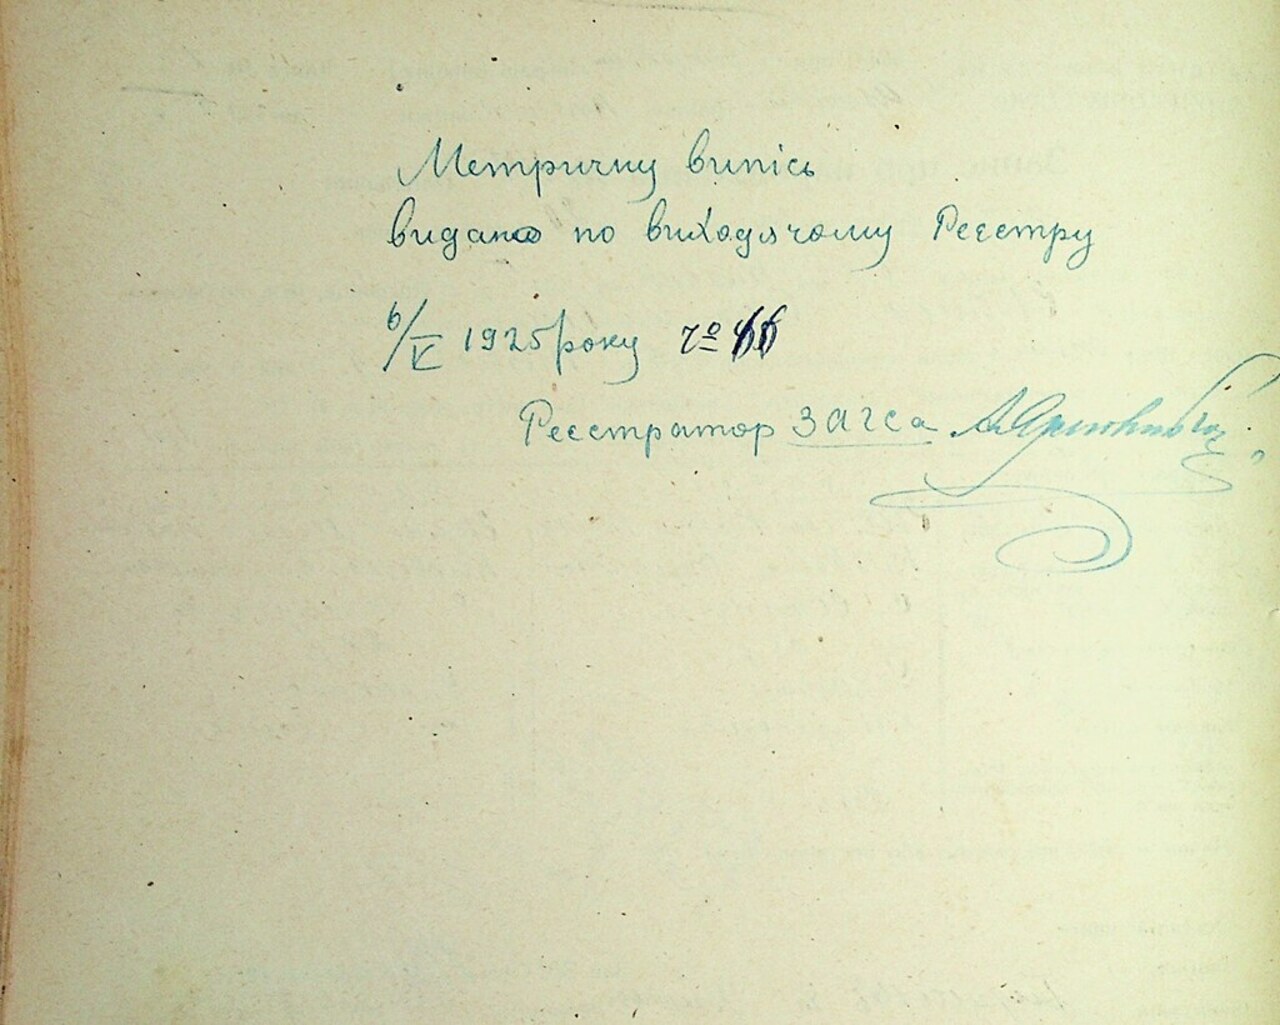 Метричну випісь
видано по виходячому Реєстру
6/V 1925 року чо
Реєстратор ЗАГСа